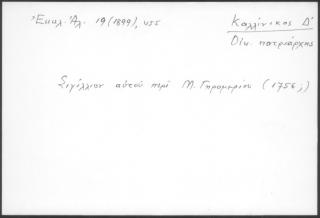 Ἐκκλ. Ἀλ. 19 (1899), 455
Καλλίνικος Δ'
Οἰκ. πατριάρχης
Σιγίλλιον αὐτοῦ περὶ Μ. Γηρομερίου (1756 ;)